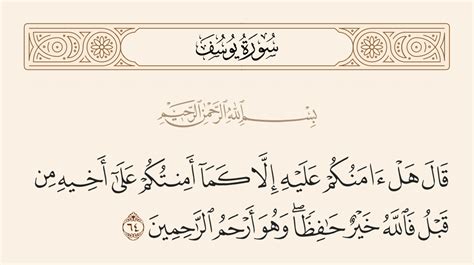 سُورَةُ يُوسُفَ
بِسْمِ ٱللَّهِ ٱلرَّحْمَٰنِ ٱلرَّحِيمِ
قَالَ هَلْ ءَامَنُكُمْ عَلَيْهِ إِلَّا كَمَآ أَمِنتُكُمْ عَلَىٰٓ أَخِيهِ مِن
قَبْلُ فَٱللَّهُ خَيْرٌ حَٰفِظًا ۖ وَهُوَ أَرْحَمُ ٱلرَّٰحِمِينَ ٦٤